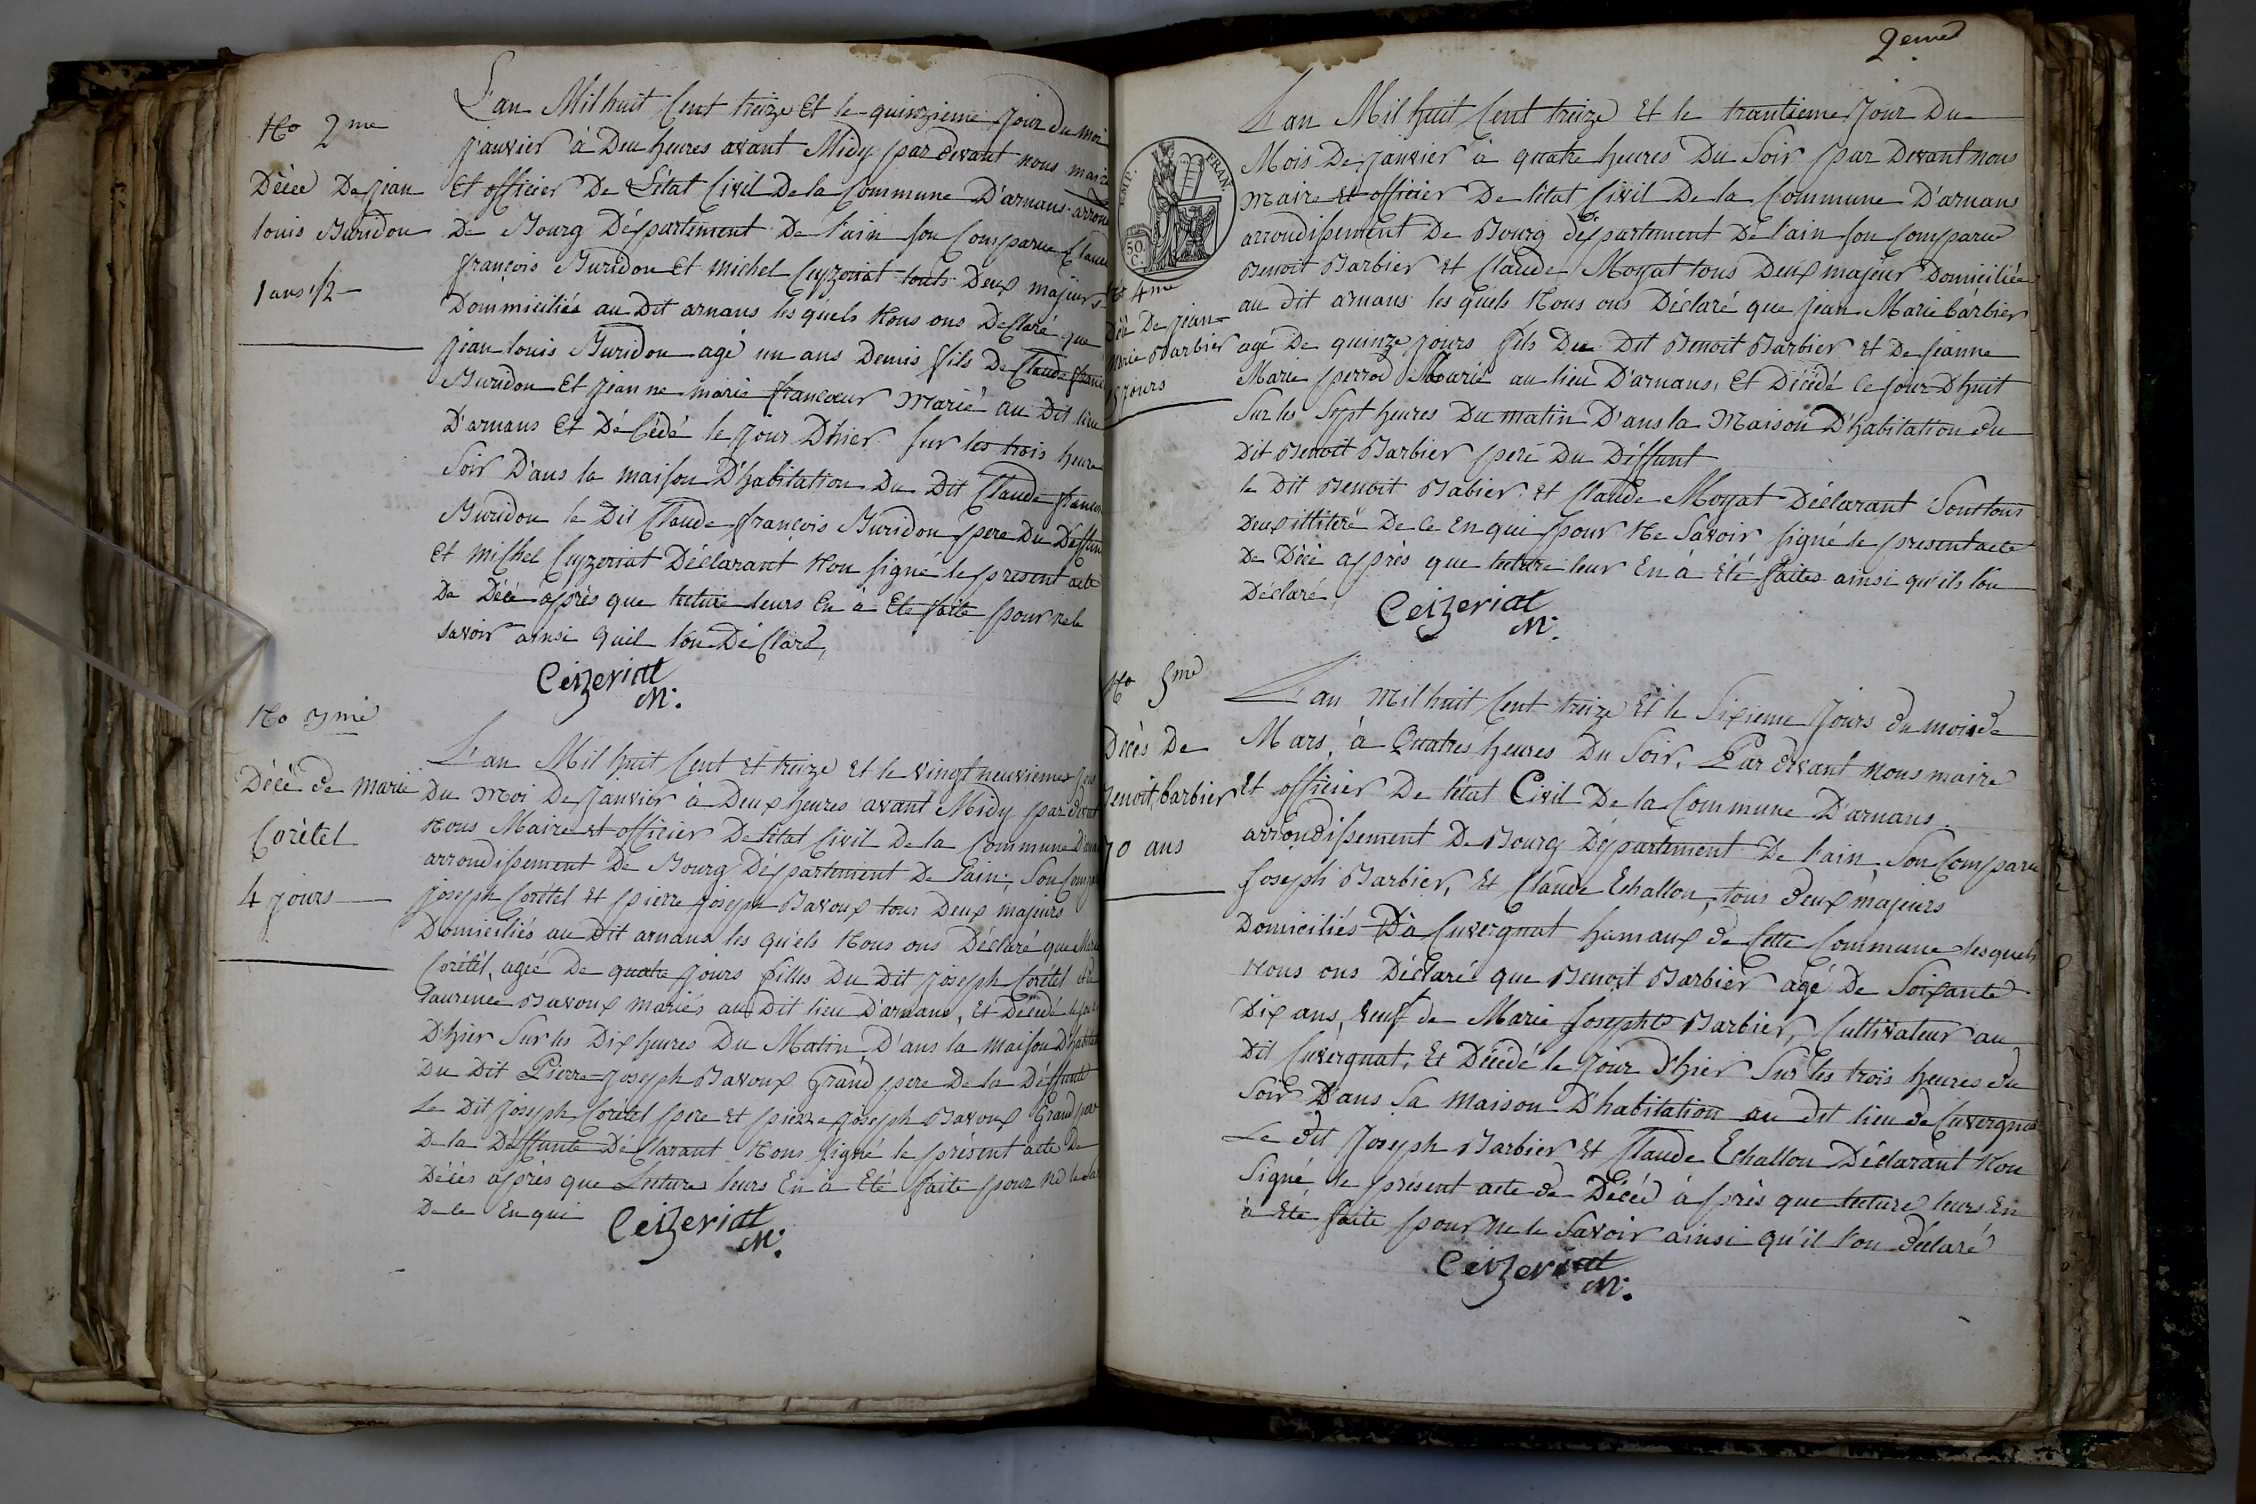 No 2me
Décé De jean
louis Buridon
1 ans 1/2
L'an Mil huit Cent treize Et le quinzieme Jour du moi
Janvier à Deu heures avant Midy par devant nous maire
Et officier De L'état Civil De la Commune D'arnans arron
De Bourg Département De l'ain son Comparue Claude
françois Buridon Et michel Cuyzeriat touts Deux majeurs
Dommiciliés au Dit arnans les quels Nous ons Declaré que
jean louis Buridon agé un ans Demis fils De Claude franc
Buridon Et jeanne marie francoeur Marié au Dit lieu
D'arnans Et Dé Cédé le jour D'hier sur les trois heure
Soir D'ans la maison D'habitation Du Dit Claude franco
Buridon le Dit Claude françois Buridon pere Du Deffun
Et michel Cuyzeriat Déclarant Non signé le present acte
De Décé après que lecture leurs En à Eté faite pour ne le
savoir ainsi quil lon Dé Claré,
Ceizeriat
M.
No 3me
Décè de marie
Corètel
4 jours
L'an Mil huit Cent Et treize Et le vingt neuvieme Jour
Du Moi De Janvier à Deux heures avant Midy par devant
Nous Maire et officier De létat Civil De la Commune D'arn
arrondissement De Bourg Département De l'ain, Son Compa
joseph Corètel Et pierre joseph Bavoux tous Deux majeurs
Domiciliés au Dit arnans les qu'els Nous ons Déclaré que Marie
Corètel, ageé De quatre jours filles Du Dit joseph Corètel et de
laurence Bavoux mariés au Dit lieu D'arnans, Et Décédé le jour
D'hier Sur les Dix heures Du Matin D'ans la maison D'habitat
Du Dit Pierre joseph Bavoux Grand pere De la Déffunte
Le Dit joseph Corètel pere et pierre joseph Bavoux Grand per
De la Deffunte Dé Clarant Nons signé le présent acte De
Décés après que Lectures leurs En à Eté faite pour ne le sa
De ce Enqui
Ceizeriat
M.
2eme
EMP. FRAN.
50.
C.
No 4me
Décé De jean
Marie Barbier
15 jours
L'an Mil huit Cent treize Et le trantieme Jour Du
Mois De janvier à quatre heures Du Soir par Devant nous
maire et officier De létat Civil De la Commune D'arnans
arrondissement De Bourg département De l'ain son Comparu
Benoit Barbier Et Claude Moyat tous Deux majeur Domiciliée
au dit arnans les quels Nous ons Déclaré que jean Marie barbier
agé De quinze jours fils Du Dit Benoit Barbier Et De jeanne
Marie perrod Marié au lieu D'arnans, Et Décédé Ce jour D'huit
Sur les Sept heures Du matin D'ans la Maison D'habitation du
Dit Benoit Barbier pere Du Déffunt
le Dit Benoit Babier Et Claude Moyat Déclarant Sont tous
Deux illiteré De Ce Enqui pour Ne Savoir signé le present acte
De Décè après que lecture leur En à Eté faites ainsi qu'ils lon
Déclaré
Ceizeriat
M.
No 5me
Décés De
Benoit barbier
70 ans
L'an mil huit Cent treize Et le Sixieme jours du mois de
Mars, à Quatres heures Du Soir, Par devant nous maire
Et officier De létat Civil De la Commune D'arnans
arrondissement De Bourg Département De l'ain, Son Comparu
Joseph Barbier, Et Claude Echallon, tous deux majeurs
Domiciliés D'à Cuvergnat hamaux de Cette Commune lesquels
Nous ons Déclaré que Benoit Barbier agé De Soixante
Dix ans, veuf de Marie Josephte Barbier, Cultivateur au
Dit Cuvergnat, Et Décédé le jour d'hier Sur les trois heures du
Soir D'ans Sa Maison D'habitation au dit lieu de Cuvergnat
Le dit Joseph Barbier Et Claude Echallon Déclarant Non
Signé le présent acte de Décéd à près que lecture leurs En
à Eté faite pour ne le Savoir ainsi qu'il l'on déclaré
Ceizeriat
M.